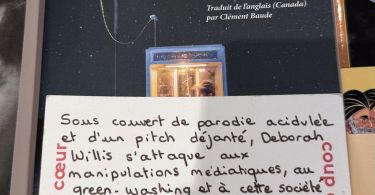 Traduit de l'anglais (Canada)
par Clément Baude
Sous couvert de parodie acidulée
et d'un pitch déjanté, Deborah
Willis s'attaque aux
manipulations médiatiques, au
green-washing et à cette société
cœur
coup